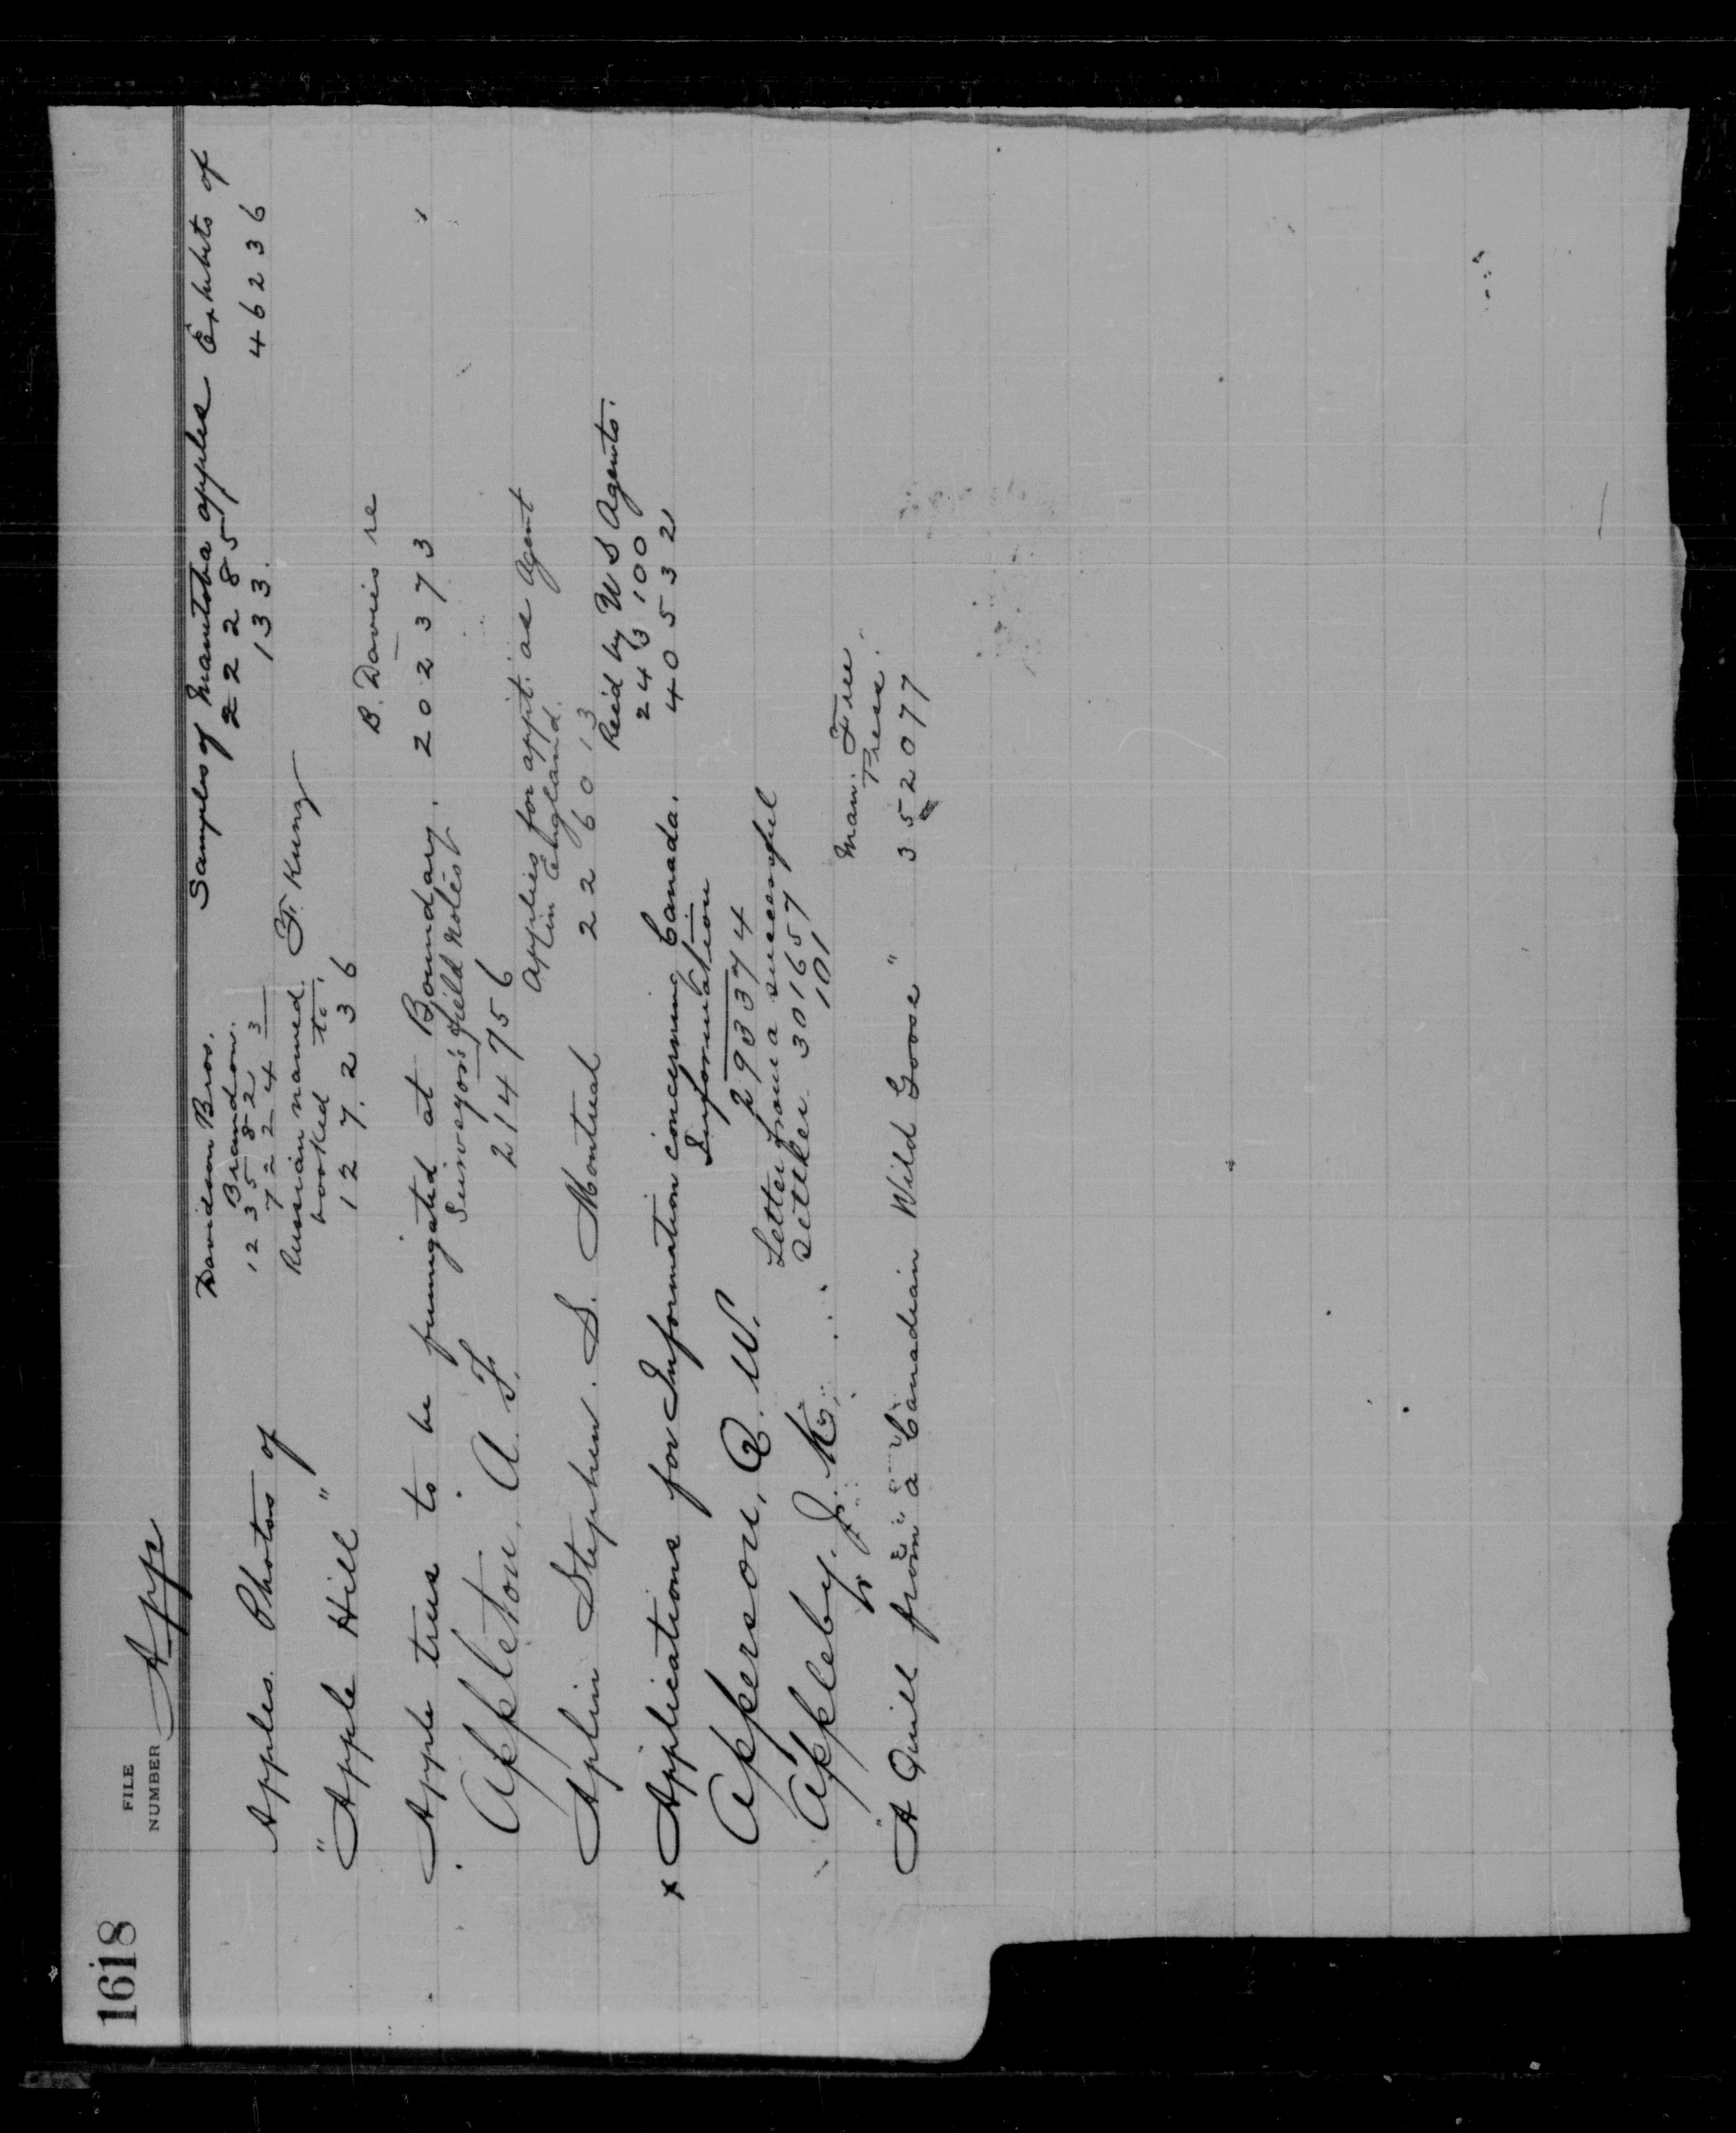 1618
FILE
NUMBER
App
Davidson Bros.
Samples of Manitoba apples Exhibits of
Apples. Photos of Brandon. 22285
123582 133. 46236
72243
Russian named F. Kunz
"Apple Hill" booked to
127.236
B. Davies re
Apple trees to be fumigated at Boundary. 202373
Surveyors field notes
Appleton, A. F. 214756
Applies for appt. as agent
Aplin England.
Aplin Stephen. S. Montreal 226013
Rec'd by U S Agents.
243100
x Applications for Information concerning Canada. 40532
Information
Apperson, Q. W. 293374
Letter from a successful
Appleby, J. K. settler 301657
101
Man. Free
Press.
"A Quill from a Canadian Wild Goose" 352077